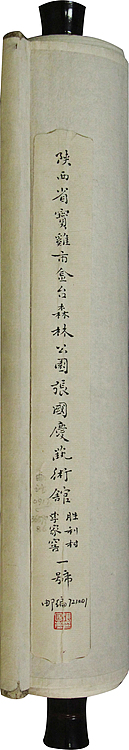 陕西省寳雞市金台森林公園張國慶藝術館
胜利村
李家窑
一號
邮编721001